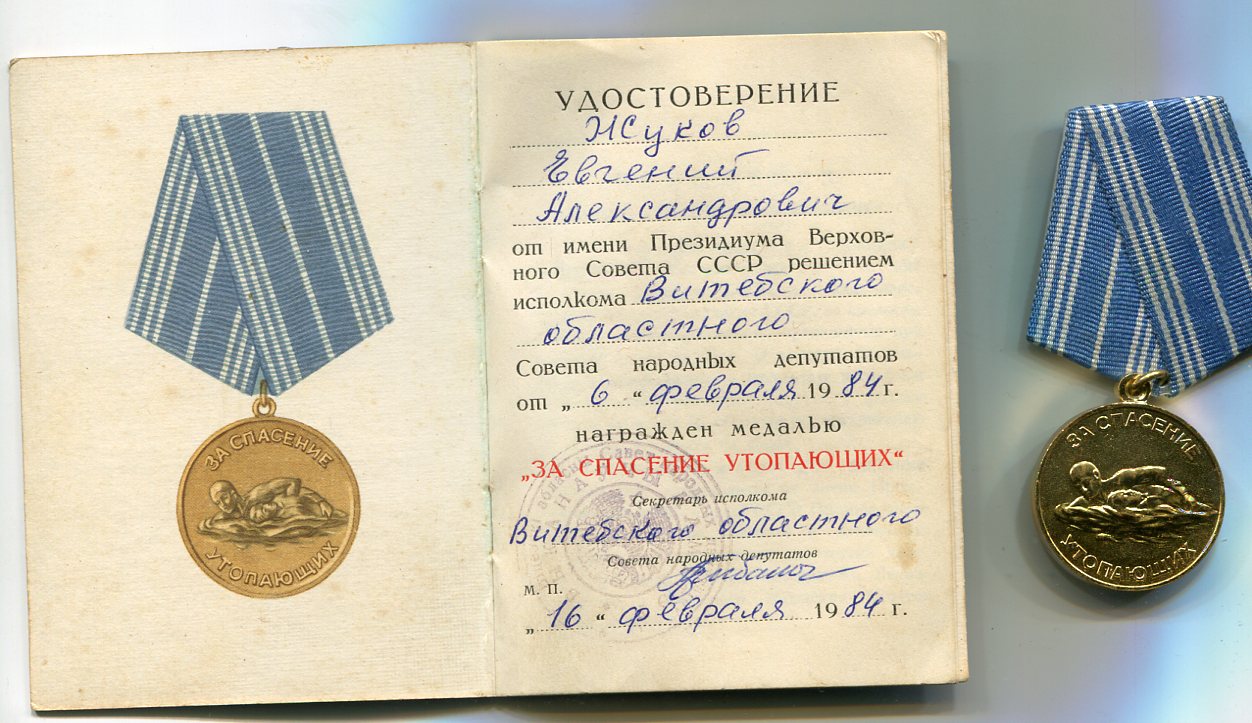 ЗА СПАСЕНИЕ
УТОПАЮЩИХ
УДОСТОВЕРЕНИЕ
Жуков
Евгений
Александрович
от имени Президиума Верхов-
ного Совета СССР решением
исполкома Витебского
областного
Совета народных депутатов
от „ 6 “ февраля 1984 г.
награжден медалью
„ЗА СПАСЕНИЕ УТОПАЮЩИХ“
Секретарь исполкома
Витебского областного
Совета народных депутатов
М. П.
„ 16 “ февраля 1984 г.
ЗА СПАСЕНИЕ
УТОПАЮЩИХ